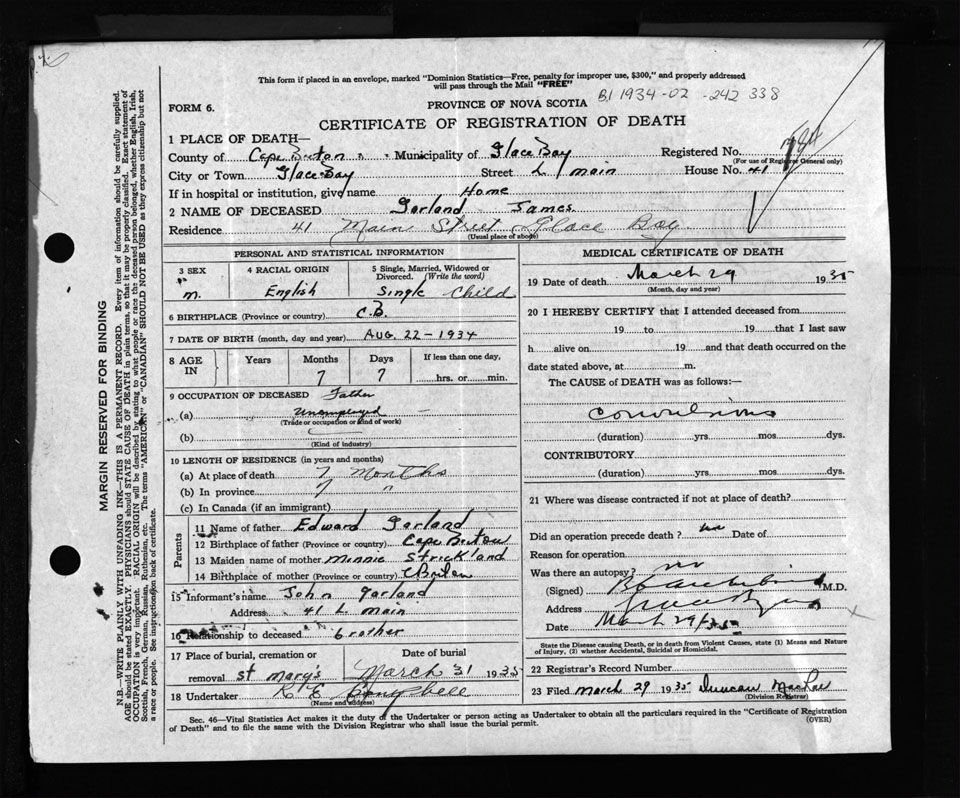 This form if placed in an envelope, marked "Dominion Statistics—Free, penalty for improper use, $300," and properly addressed
will pass through the Mail "FREE"
B1 1934-02-242 338
FORM 6.
PROVINCE OF NOVA SCOTIA
CERTIFICATE OF REGISTRATION OF DEATH
1 PLACE OF DEATH—
County of Cape Breton Municipality of Glace Bay Registered No.
(For use of Registrar General only)
City or Town Glace Bay Street L. main House No. 41
If in hospital or institution, give name Home
2 NAME OF DECEASED Garland James
Residence 41 Main Street Glace Bay
(Usual place of abode)
PERSONAL AND STATISTICAL INFORMATION
3 SEX
m.
4 RACIAL ORIGIN
English
5 Single, Married, Widowed or
Divorced. (Write the word)
Single Child
6 BIRTHPLACE (Province or country) C.B.
7 DATE OF BIRTH (month, day and year) AUG. 22-1934
8 AGE
IN
Years
Months
7
Days
7
If less than one day,
hrs. or min.
9 OCCUPATION OF DECEASED Father
(a) Unemployed
(Trade or occupation or kind of work)
(b)
(Kind of industry)
10 LENGTH OF RESIDENCE (in years and months)
(a) At place of death 7 Months
(b) In province 7 "
(c) In Canada (if an immigrant)
Parents
11 Name of father Edward Garland
12 Birthplace of father (Province or country) Cape Breton
13 Maiden name of mother Minnie Strickland
14 Birthplace of mother (Province or country) C Breton
15 Informant's name John Garland
Address 41 L. main
16 Relationship to deceased brother
17 Place of burial, cremation or
removal St Mary's
Date of burial
March 31 1935
18 Undertaker K E Campbell
(Name and address)
MEDICAL CERTIFICATE OF DEATH
19 Date of death March 29 1935
(Month, day and year)
20 I HEREBY CERTIFY that I attended deceased from
19 to 19 that I last saw
h alive on 19 and that death occurred on the
date stated above, at m.
The CAUSE of DEATH was as follows:—
Convulsions
(duration) yrs. mos. dys.
CONTRIBUTORY
(duration) yrs. mos. dys.
21 Where was disease contracted if not at place of death?
Did an operation precede death? no Date of
Reason for operation
Was there an autopsy? no
(Signed) M.D.
Address
Date March 29/35
State the Disease causing Death, or in death from Violent Causes, state (1) Means and Nature
of Injury, (2) whether Accidental, Suicidal or Homicidal.
22 Registrar's Record Number
23 Filed March 29 1935 Duncan MacRae
(Division Registrar)
Sec. 46—Vital Statistics Act makes it the duty of the Undertaker or person acting as Undertaker to obtain all the particulars required in the "Certificate of Registration
of Death" and to file the same with the Division Registrar who shall issue the burial permit.
(OVER)
MARGIN RESERVED FOR BINDING
N.B.—WRITE PLAINLY WITH UNFADING INK—THIS IS A PERMANENT RECORD. Every item of information should be carefully supplied.
AGE should be stated EXACTLY. PHYSICIANS should STATE CAUSE OF DEATH in plain terms, so that it may be properly classified. Exact statement of
OCCUPATION is very important. RACIAL ORIGIN will be described by stating to what people or race the deceased person belonged, whether English, Irish,
Scottish, French, German, Russian, Ruthenian, etc. The terms "AMERICAN" or "CANADIAN" SHOULD NOT BE USED as they express citizenship but not
a race or people. See instructions on back of certificate.